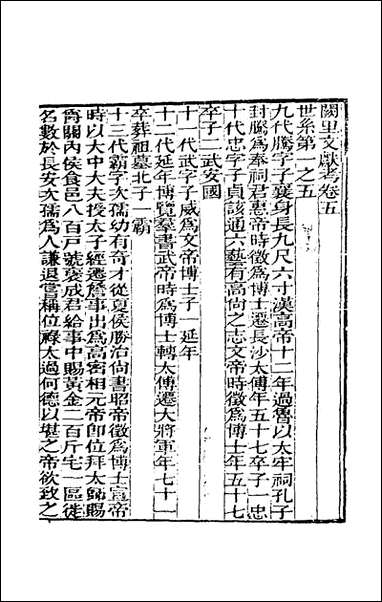 闕里文獻考卷五
世系第一之五
九代騰字子襄身長九尺六寸漢高帝十二年過魯以大牢祠孔子
封騰爲奉祠君惠帝時徵爲博士遷長沙太傅年五十七卒子一忠
十代忠字子貞該通六藝有高尚之志文帝時徵爲博士年五十七
卒子二武安國
十一代武字子威爲文帝博士子一延年
十二代延年博覽羣書武帝時爲博士轉太傅遷大將軍年七十一
卒葬祖墓北子一霸
十三代霸字次孺幼有奇才從夏侯勝治尙書昭帝徵爲博士宣帝
時以大中大夫授太子經遷詹事出爲高密相元帝卽位拜太師賜
爵關內侯食邑八百戸號褒成君給事中賜黃金二百斤宅一區徙
名數於長安次孺爲人謙退嘗稱位祿太過何德以堪之帝欲致之